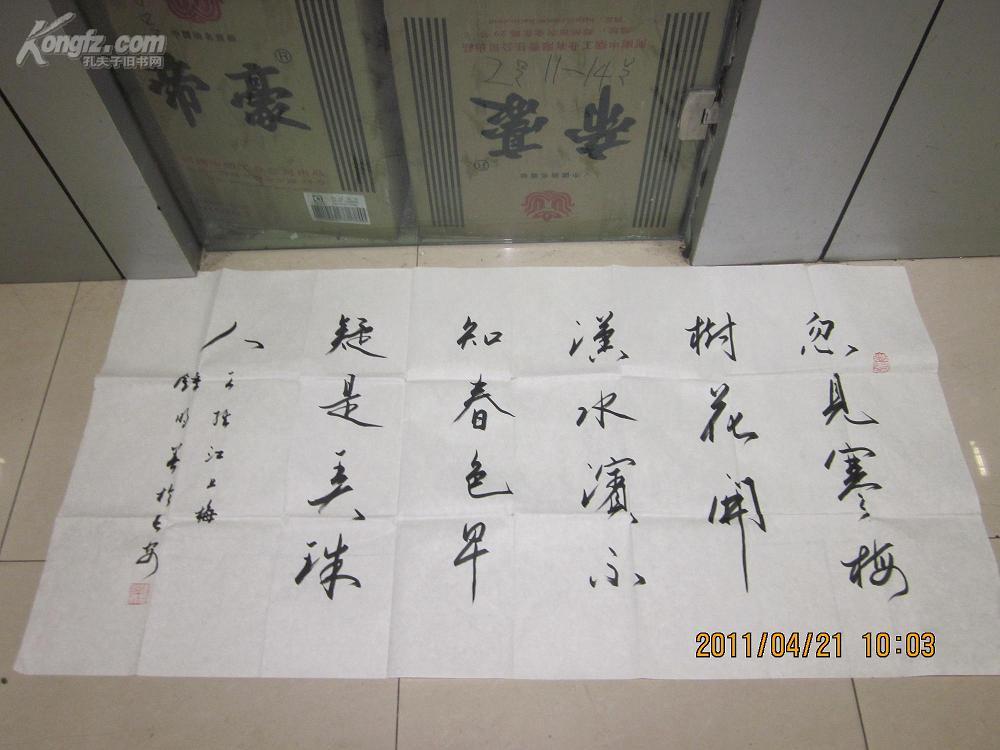 Kongfz.com
孔夫子旧书网
帝豪
®
帝豪
®
2号 11-14号
忽見寒梅
樹花開
漢水濱不
知春色早
疑是弄珠
人
王
江上梅
鍾明善於長安
2011/04/21 10:03